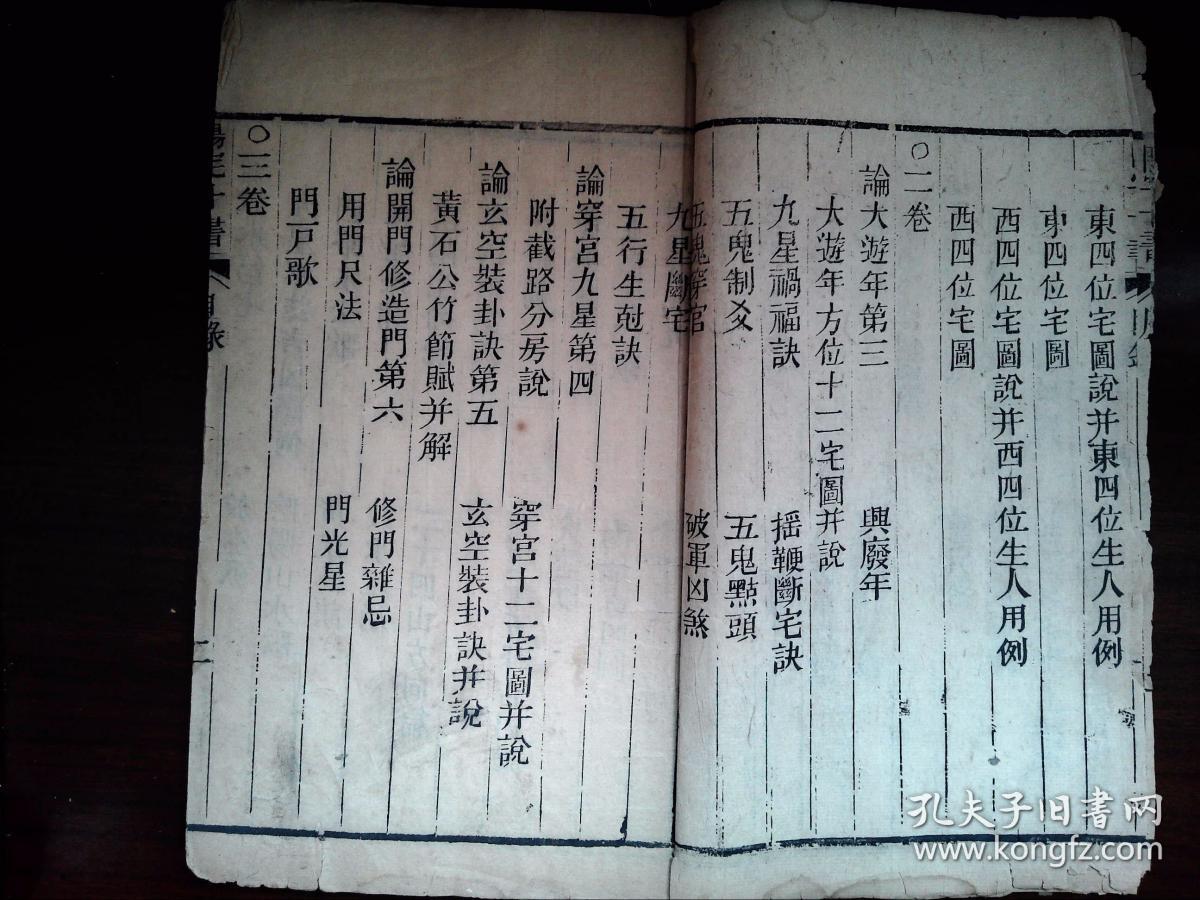 東四位宅圖說并東四位生人用例
東四位宅圖
西四位宅圖說并西四位生人用例
西四位宅圖
○二卷
論大遊年第三 興廢年
大遊年方位十二宅圖并說
九星禍福訣 揺鞭斷宅訣
五鬼制爻 五鬼㸃頭
五鬼穿宮 破軍凶煞
九星斷宅
五行生尅訣
論穿宮九星第四
附截路分房說 穿宮十二宅圖并說
論玄空裝卦訣第五 玄空裝卦訣并說
黃石公竹節賦并解
論開門修造門第六 修門雜忌
用門尺法 門光星
門戸歌
○三卷
陽宅十書 目錄 二
孔夫子旧书网
www.kongfz.com